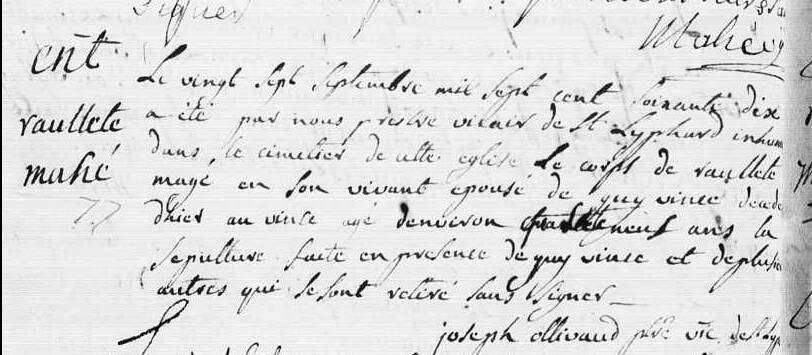 signer
Mahé
ent
raullete
mahé
77
Le vingt sept septembre mil sept cent soixante dix
a été par nous prestre vicair de St Lyphard inhum
dans le cimetier de cette eglise Le corps de raullete
mayé en son vivant epouse de guy vince decedé
dhier au vince agé denviron neuf ans la
sepulture faite en presence de guy vince et deplusieu
autres qui se sont retiré sans signer
joseph ollivaud ptre vic. de St Lyp